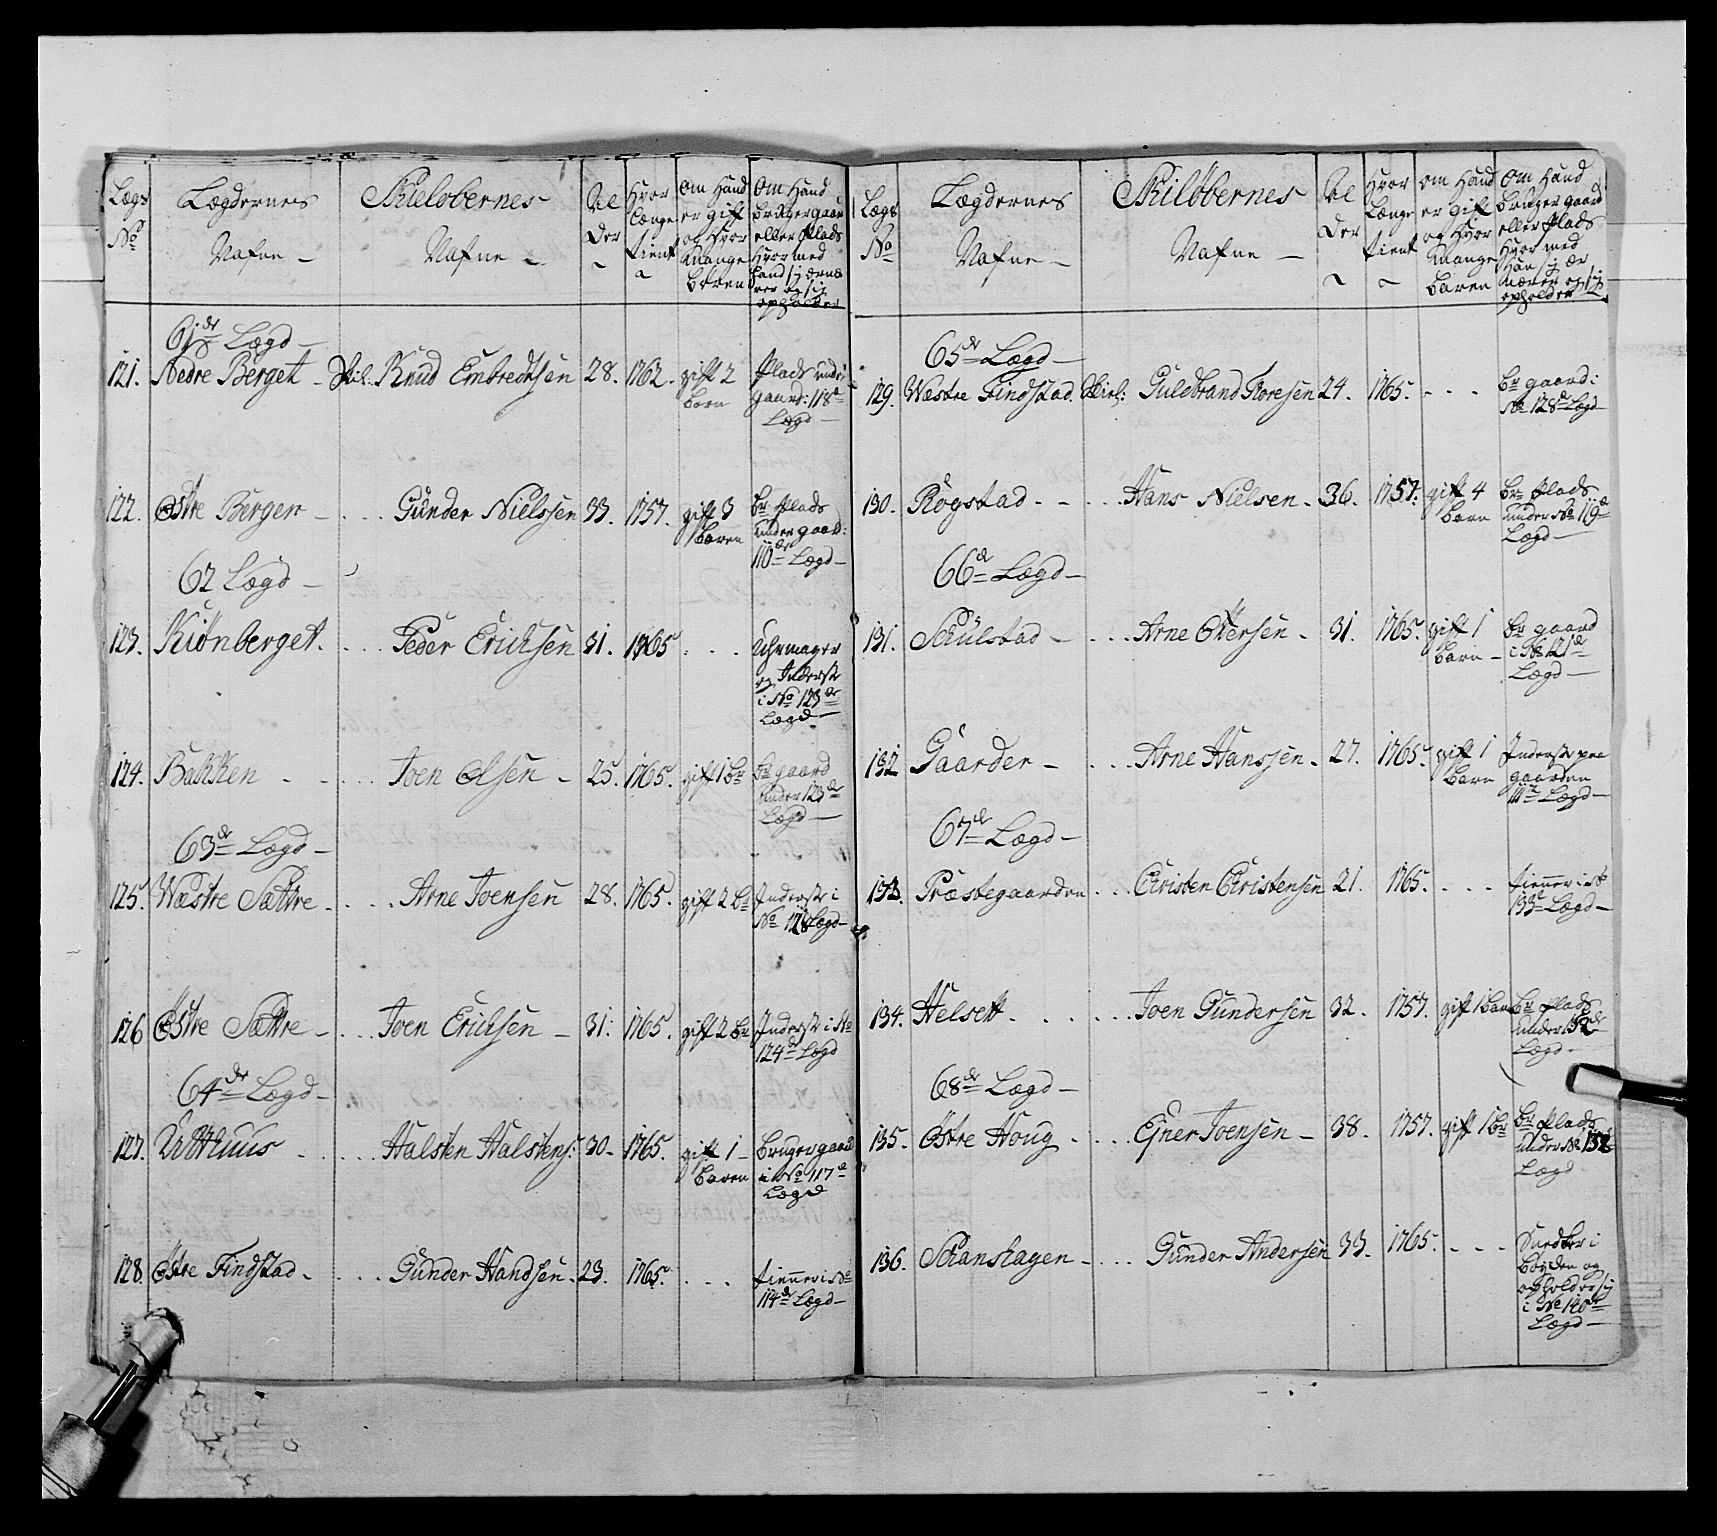 Lægs No
Lægdernes Nafne
Skieløbernes Nafne
Al der
Hvor længe tient
Om Hand er gift og Hvor mange børen
Om Hand bruger gaard eller Plads Hvor med hand sig ernerer og sig opholder
61de Lægd
121. Nedre Berget Skil: Knud Embredsen 28. 1762. gift 2 børn Plads under gaard: 118de Lægd
122. Østre Bergen Gunder Nielssen 33. 1757. gift 3 børen br Plads under gaard: 110de Lægd
62 Lægd
123. Kiønberget Peder Ericksen 31. 1765 Uhrmager og Inderste i No 123de Lægd
124. Bakken Joen Olsen 25. 1765. gift 1 br br gaard under 123de Lægd
63de Lægd
125. Wæstre Sættre Arne Joensen 28. 1765. gift 2 br Inderste i No 128 Lægd
126 Østre Sættre Joen Ericksen 31. 1765. gift 2 br Inderste i No 124de Lægd
64de Lægd
127. Halsten Halstens: 30. 1765. gift 1 børen bruger gaard i No 117de Lægd
128 Østre Findstad Gunder Handsen 23. 1765. tienner i No 114de Lægd
Lægs No
Lægdernes Nafne
Skiløbernes Nafne
Al der
Hvor længe tient
Om Hand er gift og Hvor mange baren
Om Hand bruger gaard eller Plads Hvor med Han sig ernærer og sig opholder
65de Lægd
129. Wæstre Findstad Skiel: Guldbrand Thoresen 24. 1765. br gaard i No 128de Lægd
130. Rogstad Hans Nielsen 36. 1757. gift 4 barn br Plads under No 119de Lægd
66de Lægd
131. Schulstad Arne Ottersen 31. 1765. gift 1 barn br gaard i No 121de Lægd
132 Gaarder Arne Hanssen 27. 1765. gift 1 barn Inderste paa gaarden 111te Lægd
67de Lægd
133. Præstegaarden Christen Christensen 21. 1765. tienner i No 133de Lægd
134. Helsett Joen Gundersen 32. 1757. gift 1 barn br Plads under 132de Lægd
68de Lægd
135. Østre Houg Ejner Joensen 38. 1757. gift 1 br br Plads under No 132 Lægd
136. Schanshagen Gunder Andersen 33. 1765. Snedker i bøyden og opholder sig i No 140de Lægd